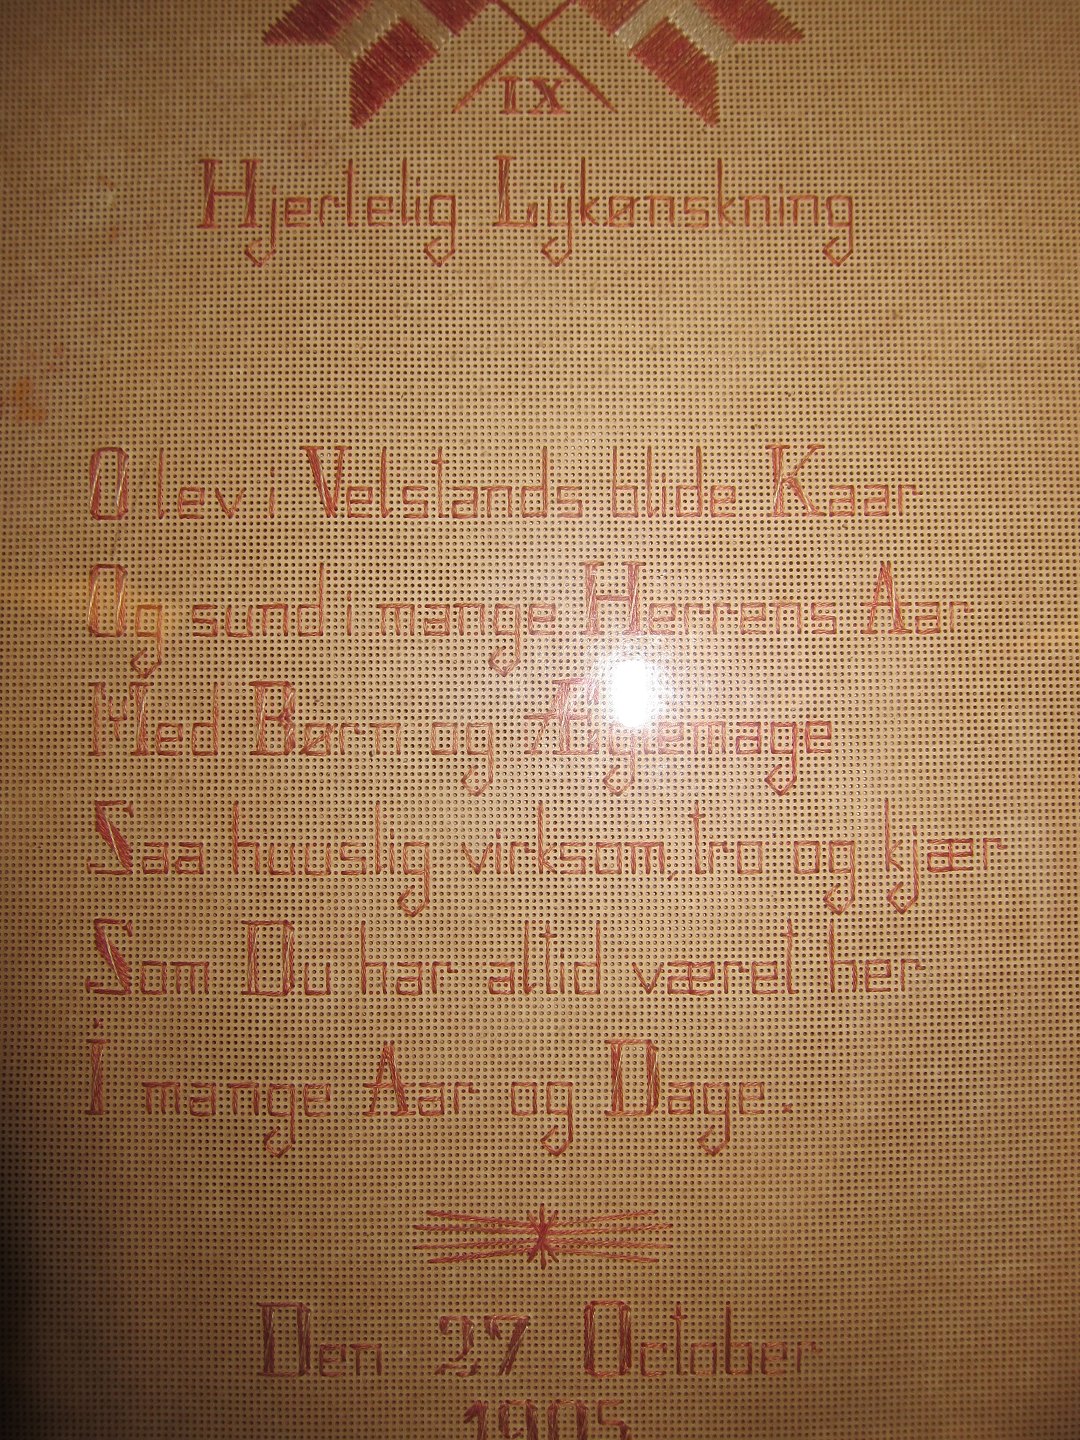 IX
Hjertelig Lÿkønskning
O lev i Velstands blide Kaar
Og sund i mange Herrens Aar
Med Børn og Ægtemage
Saa huuslig virksom, tro og kjær
Som Du har altid været her
I mange Aar og Dage.
Den 27 October
1905